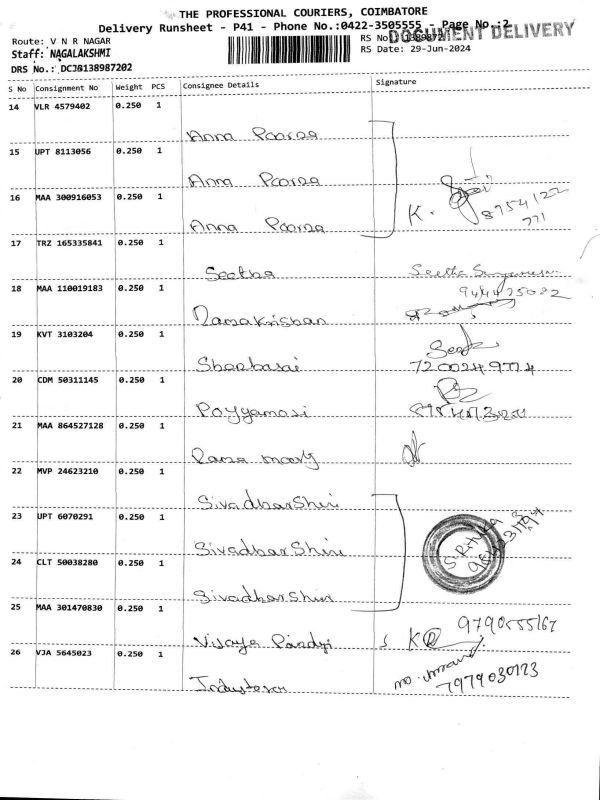 THE PROFESSIONAL COURIERS, COIMBATORE
Delivery Runsheet - P41 - Phone No.:0422-3505555 - Page No.:2
DOCUMENT DELIVERY
Route: V N R NAGAR
RS No.:
Staff: NAGALAKSHMI
RS Date: 29-Jun-2024
DRS No.: DCJB138987202
S No Consignment No Weight PCS Consignee Details Signature
14 VLR 4579402 0.250 1
Anna Poorna
15 UPT 8113056 0.250 1
Anna Poorna
16 MAA 300916053 0.250 1
Anna Poorna
K.
8754122
771
17 TRZ 165335841 0.250 1
Seetha Seetha
18 MAA 110019183 0.250 1
Ramakrishan
19 KVT 3103204 0.250 1
Sharbasai
7200249774
20 CDM 50311145 0.250 1
Poyyamosi
21 MAA 864527128 0.250 1
Rama moorty
22 MVP 24623210 0.250 1
SivadharShini
23 UPT 6070291 0.250 1
SivadharShini
24 CLT 50038280 0.250 1
SivadharShini
25 MAA 301470830 0.250 1
Vijaya Pandyi
26 VJA 5645023 0.250 1
7979030123